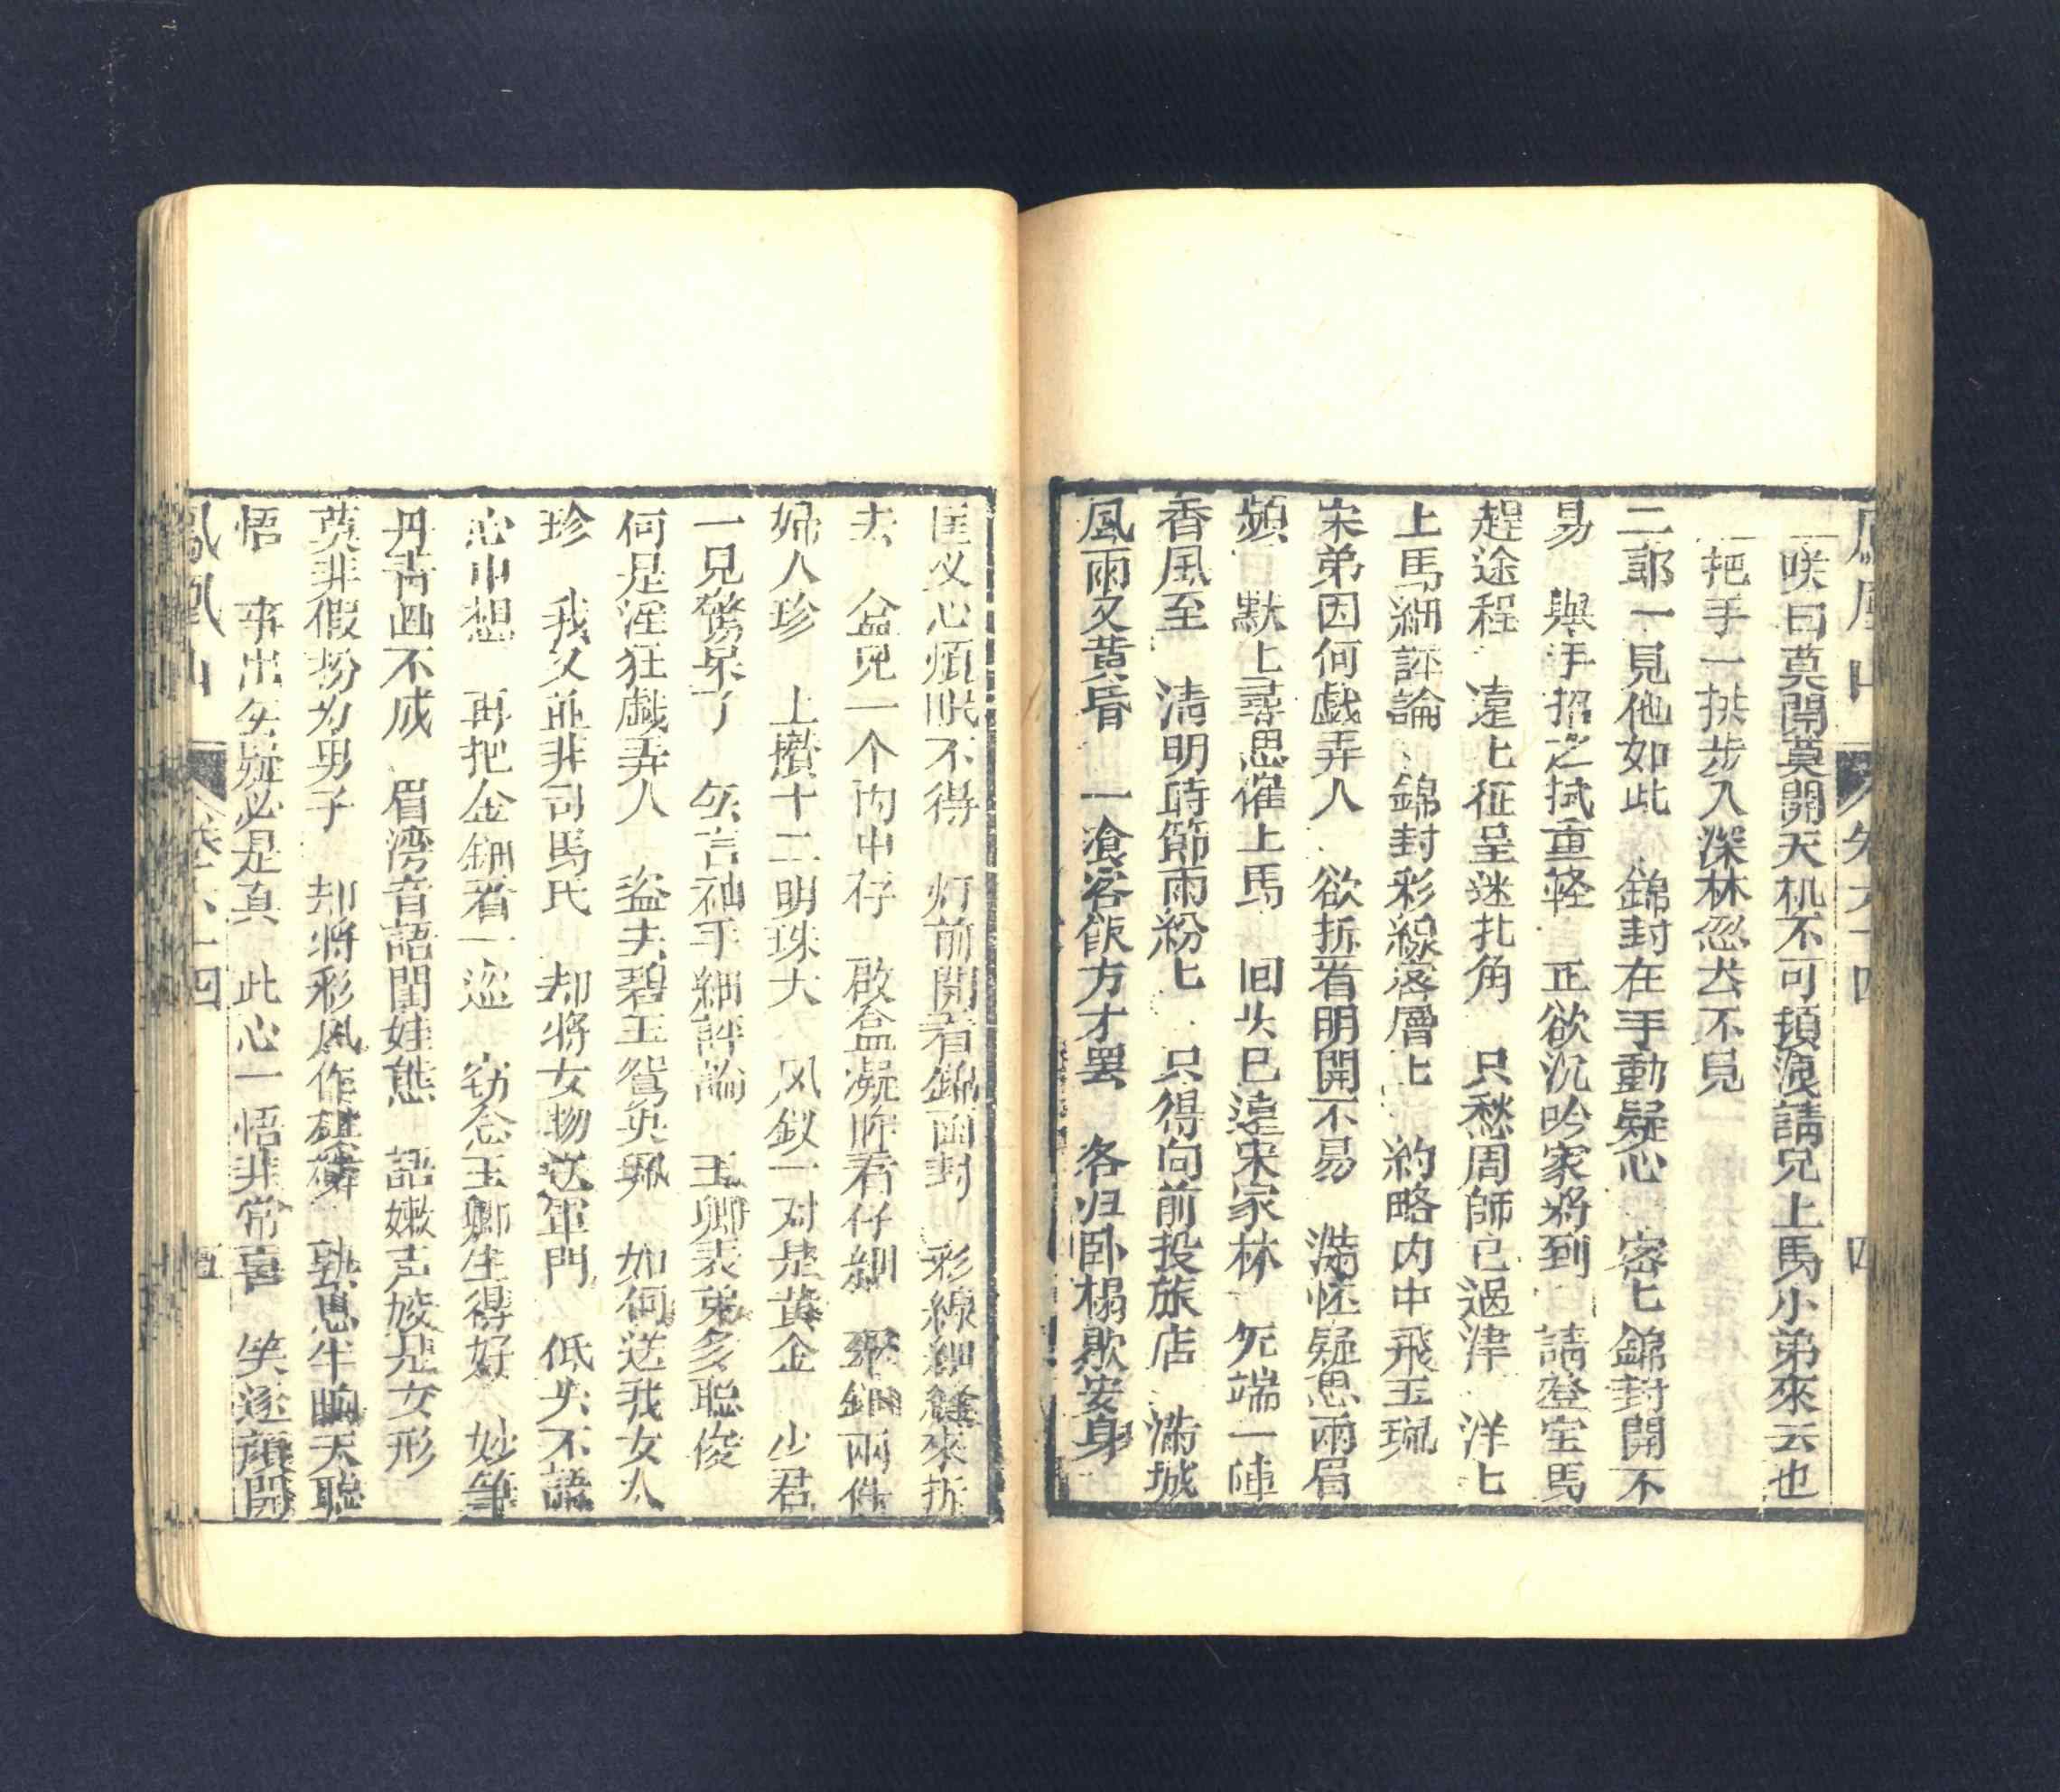 鳳凰山 卷六十四 四
咲曰莫開莫開天机不可預洩請兄上馬小弟來去也
把手一拱步入深林忽去不見
二郎一見他如此 錦封在手動疑心 密七錦封開不
易 與手招之拭重輊 正欲沉吟家將到 請登宝馬
趕途程 遠七征呈迷北角 只愁周師已過津 洋七
上馬細評論 錦封彩線落層七 約略内中飛玉珮
宋弟因何戯弄人 欲拆着明開不易 滿怀疑思兩眉
頻 默上尋思催上馬 回头已遠宋家林 旡端一陣
香風至 清明時節雨紛七 只得向前投旅店 滿城
風雨又黄昏 一飡客飯方才罢 各归卧榻歇安身
匡乂心煩眠不得 灯前開着錦函封 彩線細縫來拆
去 盒兒一个内中存 啟盒凝眸看仔細 翠鈿兩件
婦人珍 上攢十二明珠大 风釵一对是黄金 少君
一見驚呆了 矢言袖手細評論 玉卿表弟多聰俊
何是淫狂戯弄人 盗去碧玉鴛央珮 如何送我女人
珍 我乂並非司馬氏 却將女物送軍門 低头不語
心中想 再把金鈿看一巡 窃念玉卿生得好 妙筆
丹青画不成 眉湾音語閨娃態 語嫩声嬌是女形
莫非假扮为男子 却將彩风作麒麟 孰思半晌天聪
悟 事出矢疑必是真 此心一悟非常喜 笑逐顔開
鳳凰山 卷六十四 五